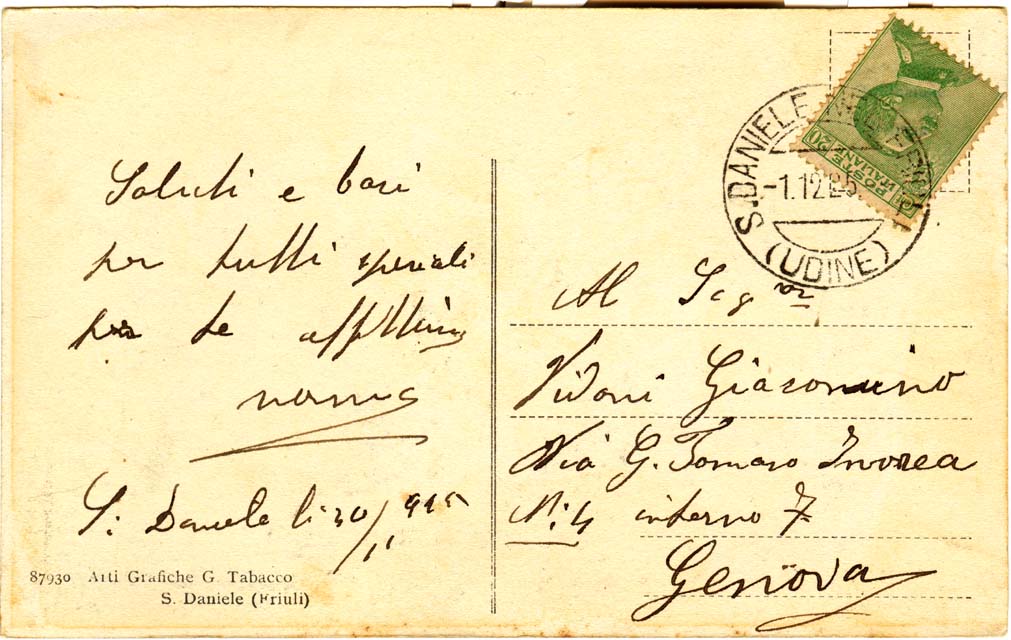 Saluti e baci
per tutti speciali
per te
nonna
S. Daniele li 30/11 925
87930 Arti Grafiche G. Tabacco
S. Daniele (Friuli)
POSTE ITALIANE
20
S. DANIELE DEL FRIULI
-1.12.25
(UDINE)
Al Sigor
Vidoni Giacomino
Via G. Tomaso Invrea
N: 4 interno 7
Genova